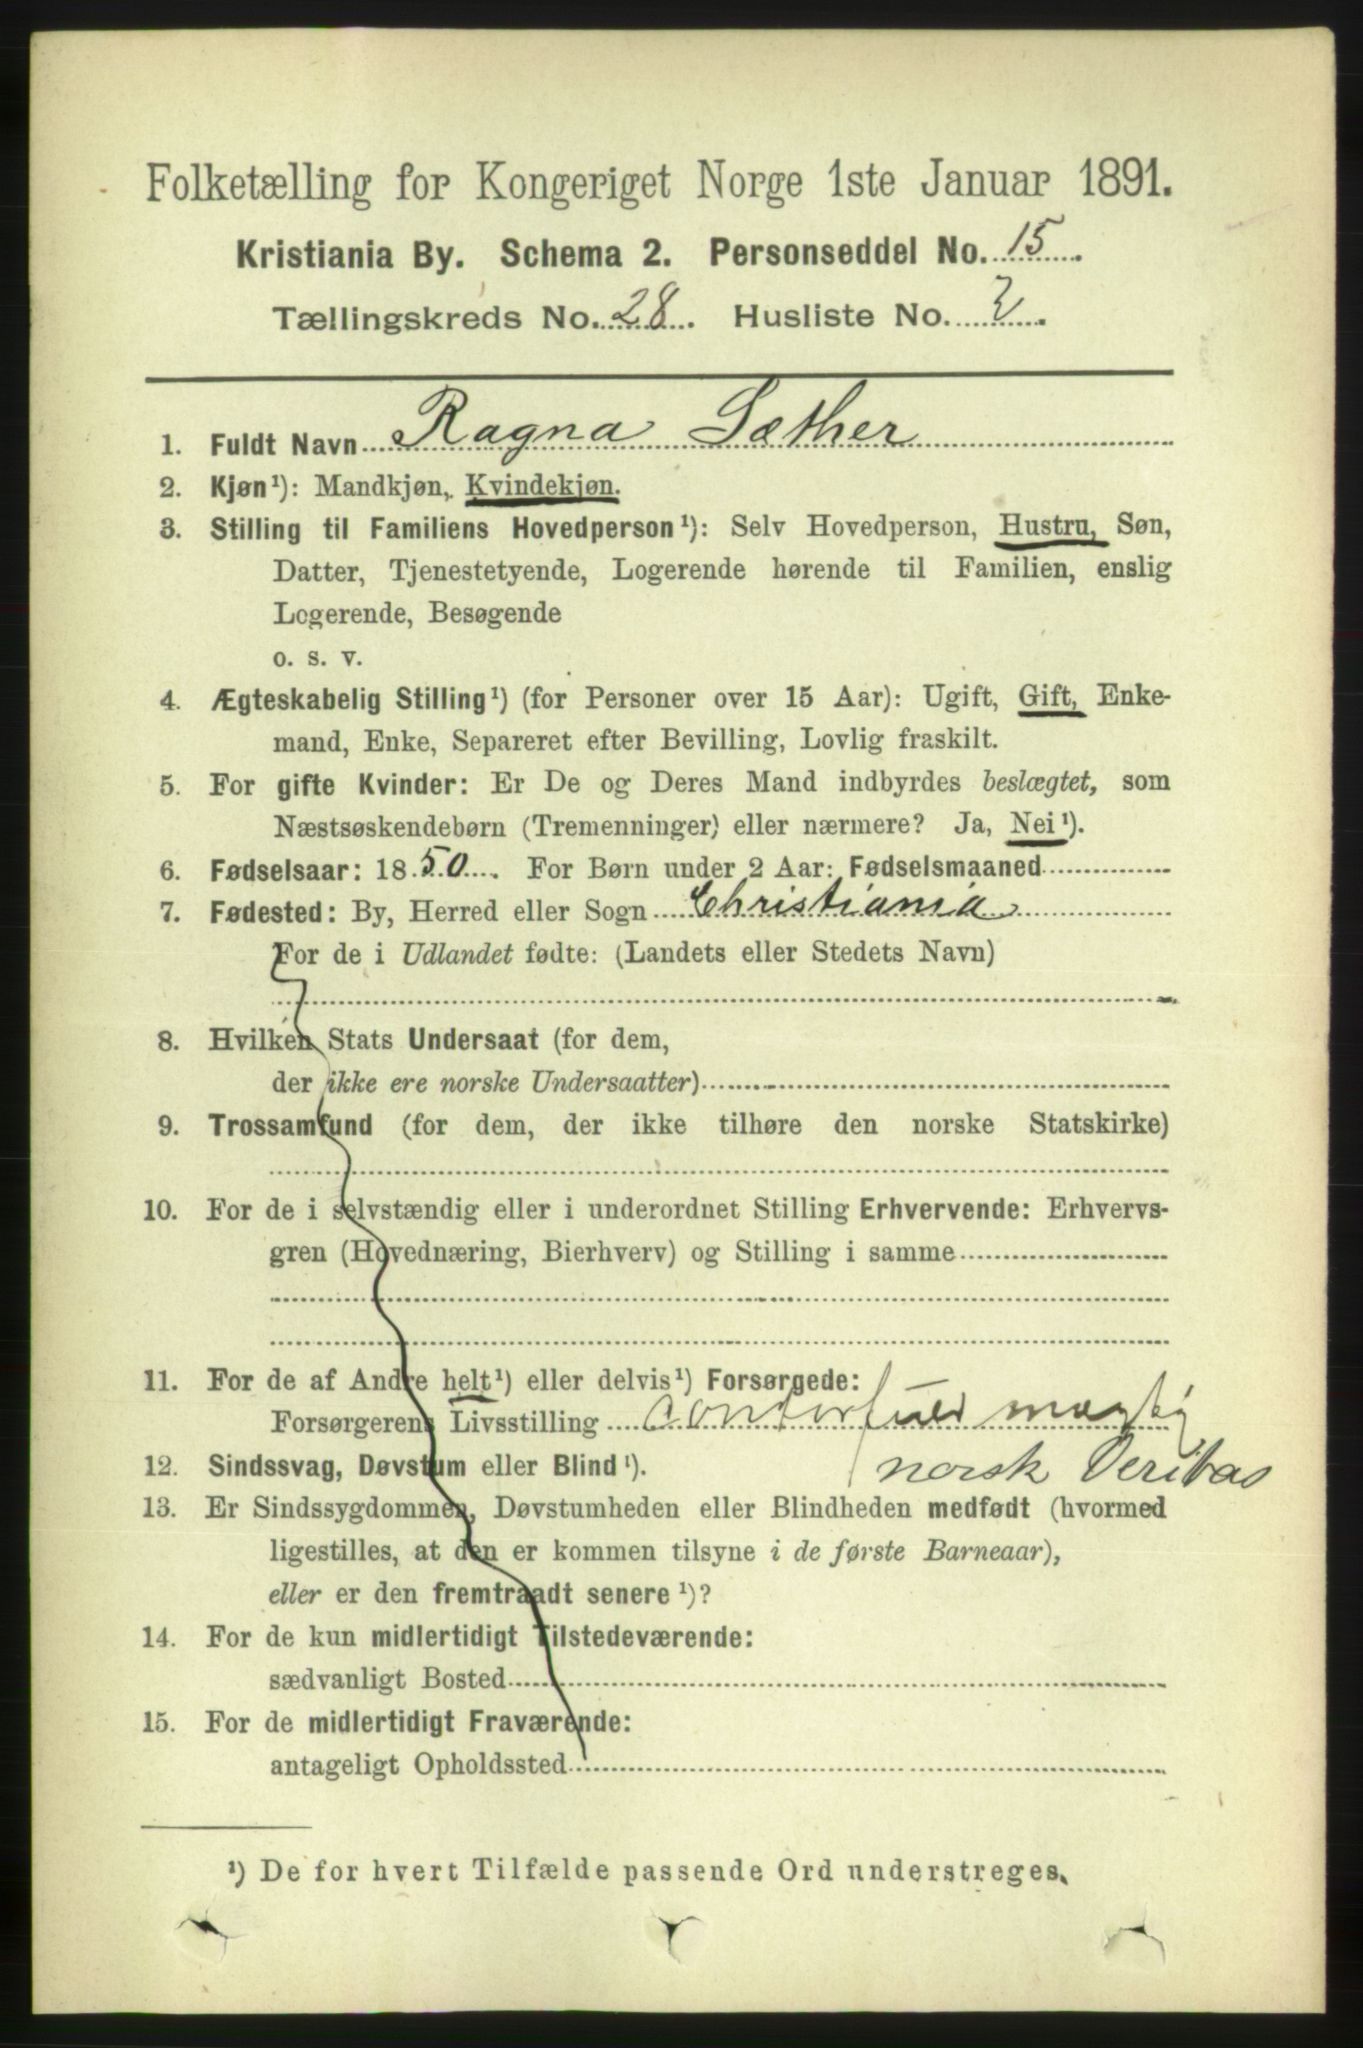 Folketælling for Kongeriget Norge 1ste Januar 1891.
Kristiania By. Schema 2. Personseddel No. 15.
Tællingskreds No. 28. Husliste No. 2.
1. Fuldt Navn Ragna Sæther
2. Kjøn¹): Mandkjøn, Kvindekjøn.
3. Stilling til Familiens Hovedperson¹): Selv Hovedperson, Hustru, Søn,
Datter, Tjenestetyende, Logerende hørende til Familien, enslig
Logerende, Besøgende
o. s. v.
4. Ægteskabelig Stilling¹) (for Personer over 15 Aar): Ugift, Gift, Enke-
mand, Enke, Separeret efter Bevilling, Lovlig fraskilt.
5. For gifte Kvinder: Er De og Deres Mand indbyrdes beslægtet, som
Næstsøskendebørn (Tremenninger) eller nærmere? Ja, Nei¹).
6. Fødselsaar: 1850. For Børn under 2 Aar: Fødselsmaaned
7. Fødested: By, Herred eller Sogn Christiania
For de i Udlandet fødte: (Landets eller Stedets Navn)
8. Hvilken Stats Undersaat (for dem,
der ikke ere norske Undersaatter)
9. Trossamfund (for dem, der ikke tilhøre den norske Statskirke)
10. For de i selvstændig eller i underordnet Stilling Erhvervende: Erhvervs-
gren (Hovednæring, Bierhverv) og Stilling i samme
11. For de af Andre helt¹) eller delvis¹) Forsørgede:
Forsørgerens Livsstilling
norsk Veritas
12. Sindssvag, Døvstum eller Blind¹).
13. Er Sindssygdommen, Døvstumheden eller Blindheden medfødt (hvormed
ligestilles, at den er kommen tilsyne i de første Barneaar),
eller er den fremtraadt senere¹)?
14. For de kun midlertidigt Tilstedeværende:
sædvanligt Bosted
15. For de midlertidigt Fraværende:
antageligt Opholdssted
¹) De for hvert Tilfælde passende Ord understreges.